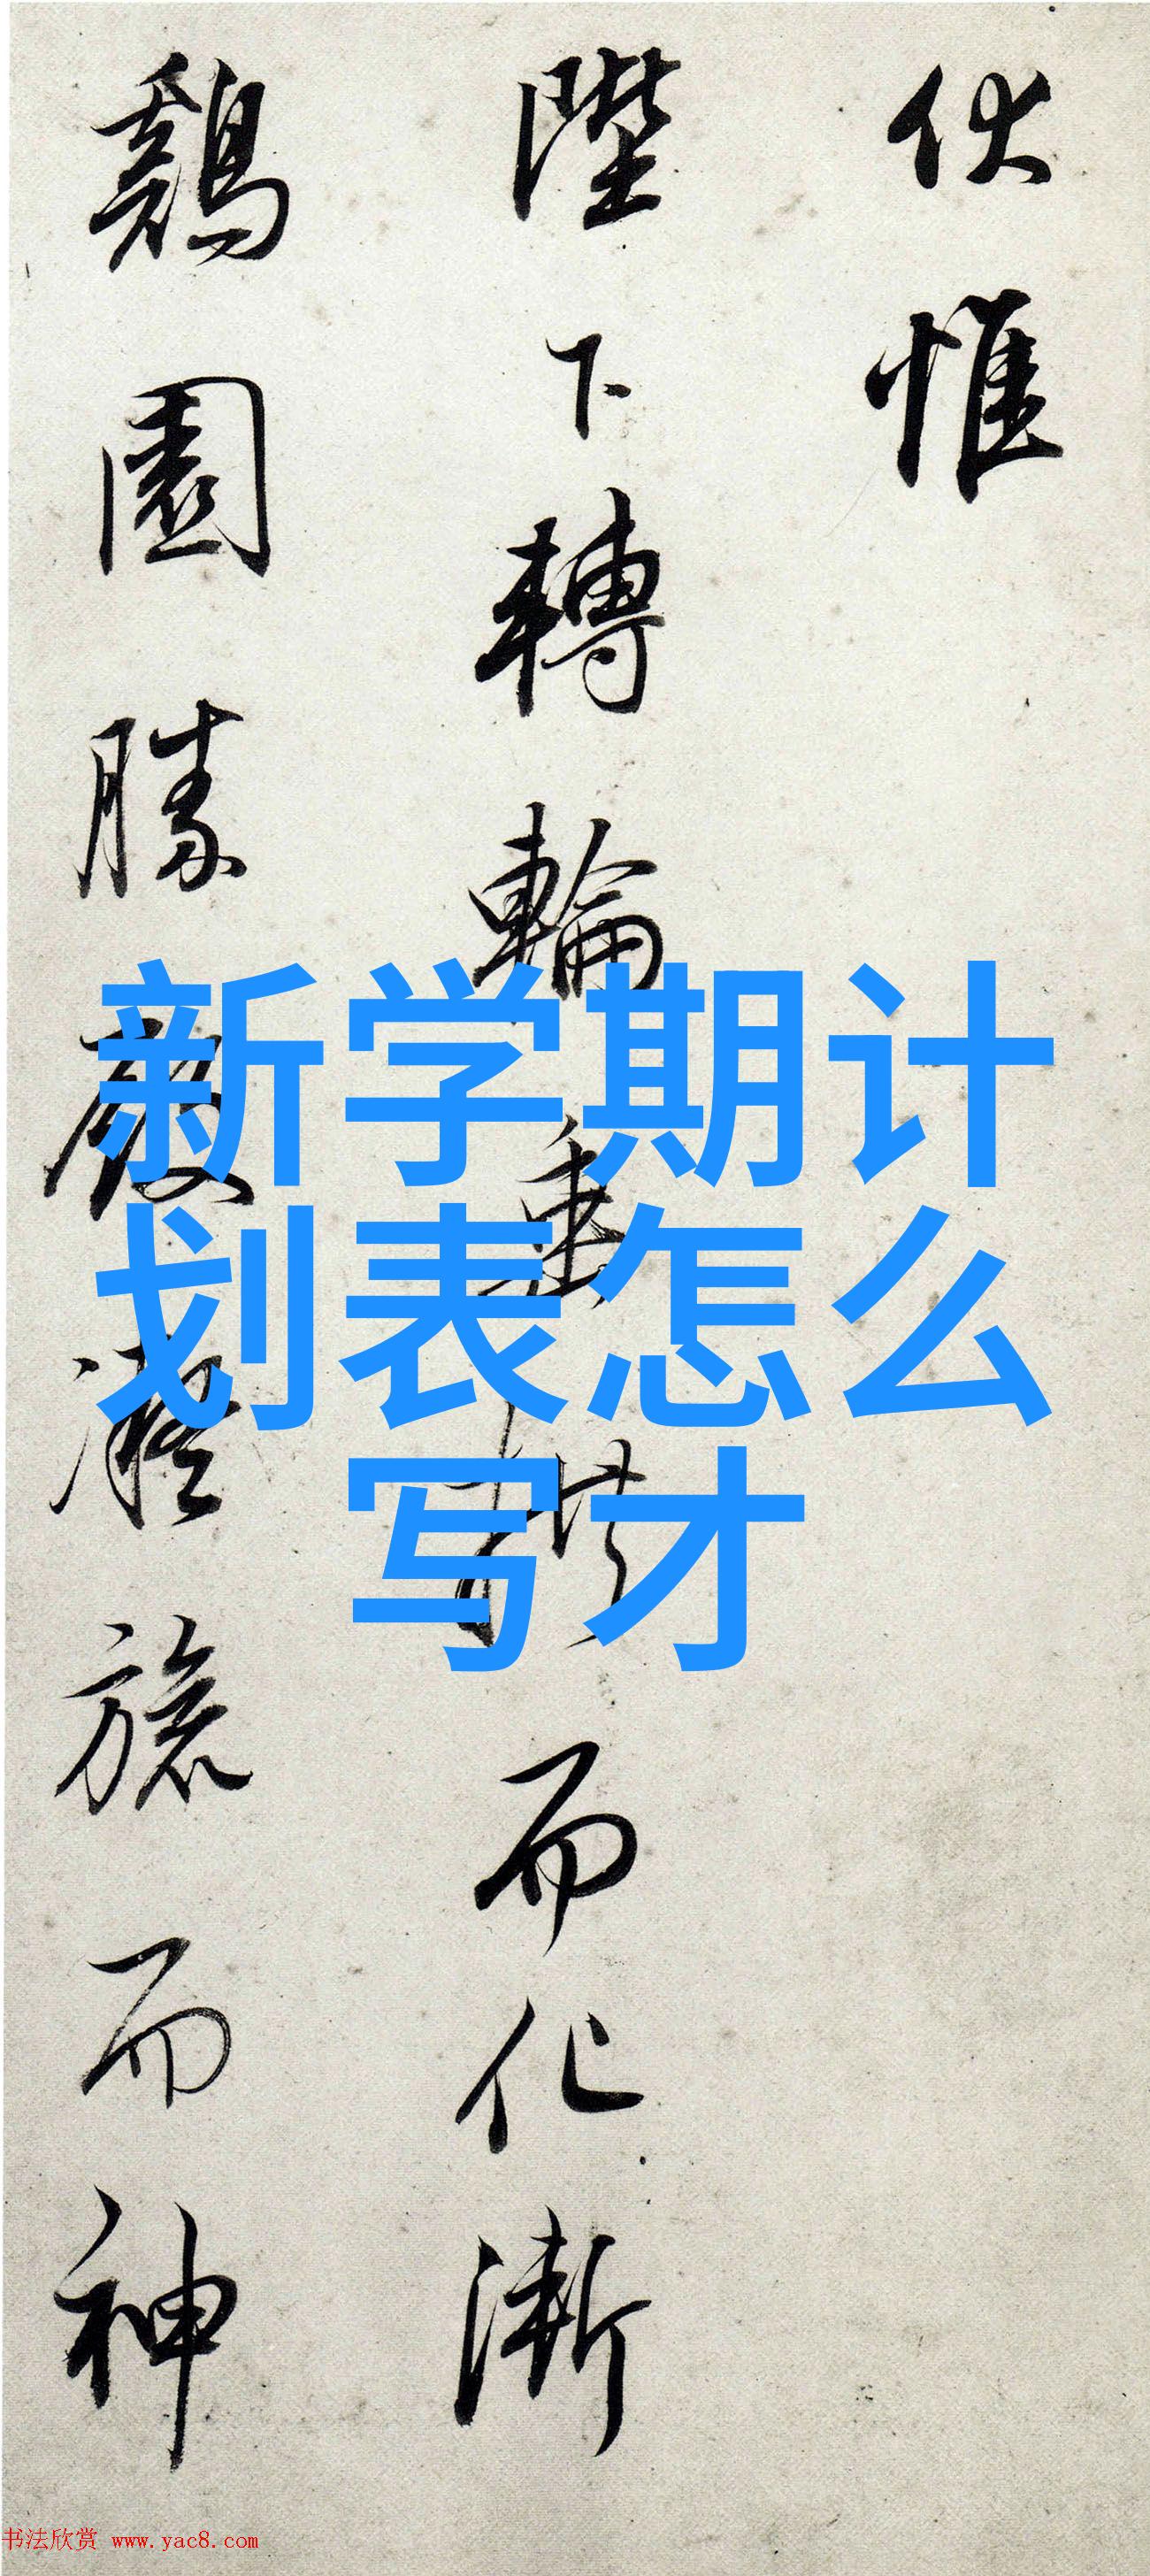 伏惟
陛下轉輪垂拱而化漸
鷄園勝殿凝旒而神
新学期计
划表怎么
写才
书法欣赏 www.yac8.com